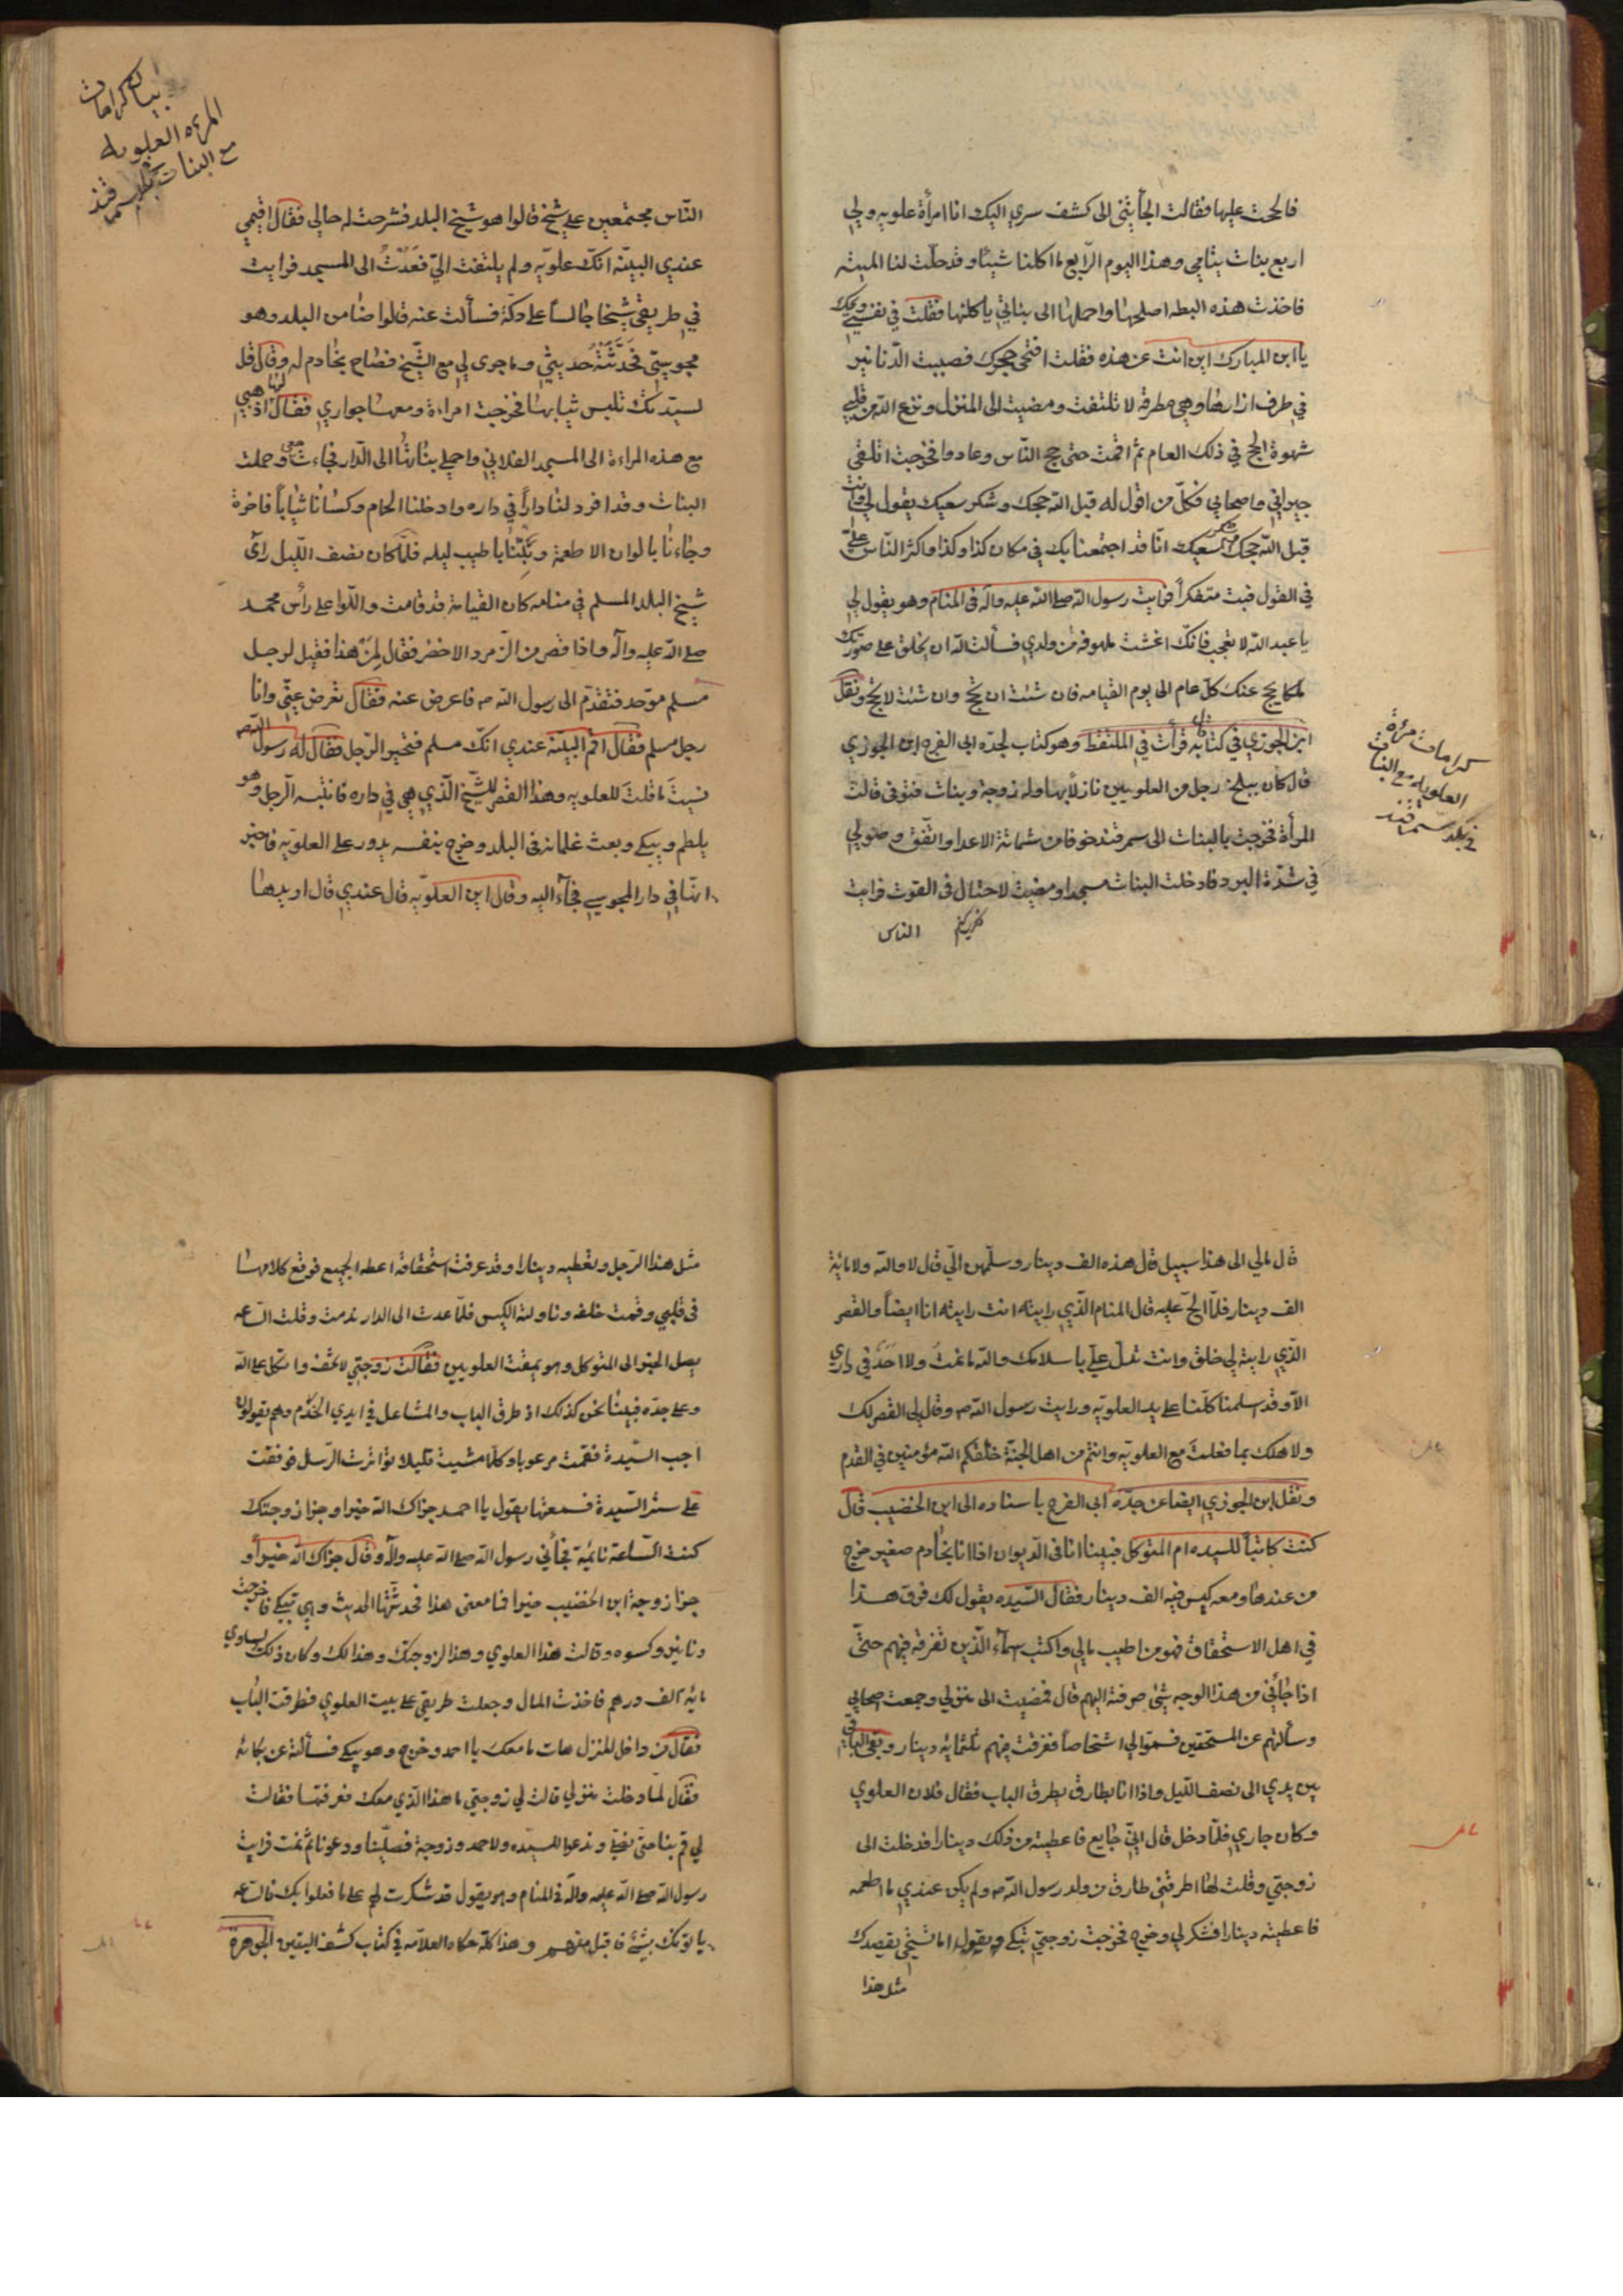 فالححت عليها فقالت الجأتني الى كشف سري اليك انا امرأة علويه ولي
اربع بنات يتامى وهذا اليوم الرّابع ما اكلنا شيئًا وقد حلّت لنا الميته
فاخذت هذه البطه اصلحها واحملها الى بناتي ياكلنها فقلت في نفسي ويحك
يا ابن المبارك اين انت عن هذه فقلت افتحي حجرك فصببت الدّنانير
في طرف ازارها وهي مطرقه لا تلتفت ومضيت الى المنزل ونزع الله من قلبي
شهوة الحج في ذلك العام ثم اقمت حتى حج النّاس وعادوا فخرجت اتلقى
جيراني واصحابي فكلّ من اقول له قبل الله حجك وشكر سعيك يقول لي وانت
قبل الله حجك وشكر سعيك انّا قد اجتمعنا بك في مكان كذا وكذا واكثر النّاس علي
في القول فبت متفكراً فرايت رسول الله صلى الله عليه وآله في المنام وهو يقول لي
يا عبد الله لا تعجب فانّك اغثت ملهوفه من ولدي فسألت الله ان يخلق على صورتك
ملكا يحج عنك كلّ عام الى يوم القيامه فان شئت ان تحج وان شئت لا تحج ونقل
ابن الجوزي في كتابه قال قرأت في الملتقط وهو كتاب لجدّه ابي الفرج ابن الجوزي
قال كان ببلخ رجل من العلويين نازلاً بها وله زوجة وبنات فتوفى قالت
المرأة فخرجت بالبنات الى سمرقند خوفا من شماتة الاعدا واتّفق وصولي
في شدّة البرد فادخلت البنات مسجدا ومضيت لاحتال في القوت فرايت
الناس
كرامات مرئة
العلويه مع البنات
في بلد سمرقند
بيان كرامات
المرءه العلويه
مع البنات بلد سمرقند
النّاس مجتمعين على شيخ قالوا هو شيخ البلد فشرحت له حالي فقال اقيمي
عندي البيّنه انّك علويّه ولم يلتفت اليّ فعدت الى المسجد فرايت
في طريقي شيخا جالساً على دكّة فسألت عنه قالوا ضامن البلد وهو
مجوسيّ فحدّثته حديثي وما جرى لي مع الشّيخ فصاح بخادم له وقال قل
لسيّدتك تلبس ثيابها فخرجت امراءة ومعها جواري فقال لها اذهبي
مع هذه المراءة الى المسجد الفلاني واحملي بناتها الى الدّار فجاءت معي وحملت
البنات وقد افرد لنا داراً في داره وادخلنا الحمام وكسانا ثياباً فاخرة
وجاءنا بالوان الاطعمة وبتنا باطيب ليله فلمّا كان نصف اللّيل رأى
شيخ البلد المسلم في منامه كان القيامة قد قامت واللّوا على رأس محمد
صلى الله عليه وآله واذا قصر من الزّمرد الاخضر فقال لمن هذا فقيل لرجل
مسلم موحّد فتقدّم الى رسول الله ص فاعرض عنه فقال تعرض عنّي وانا
رجل مسلم فقال اقم البيّنة عندي انّك مسلم فتحير الرّجل فقال له رسول الله ص
نسيت ما قلت للعلويه وهذا القصر للشّيخ الّذي هي في داره فانتبه الرّجل وهو
يلطم ويبكي وبعث غلمانه في البلد وخرج بنفسه يدور على العلويّه فاخبر
انّها في دار المجوسي فجآء اليه وقال اين العلويّه قال عندي قال اريدها
قال مالي الى هذا سبيل قال هذه الف دينار وسلّمهن اليّ قال لا والله ولا مائة
الف دينار فلمّا الحّ عليه قال المنام الّذي رايته انت رايته انا ايضاً والقصر
الّذي رايته لي خلق وانت تدلّ عليّ باسلامك والله ما نمت ولا احد في داري
الّا وقد اسلمنا كلّنا على يد العلويّه ورايت رسول الله ص وقال لي القصر لك
ولاهلك بما فعلت مع العلويّه وانتم من اهل الجنّة خلقكم الله مؤمنين في القدم
ونقل ابن الجوزي ايضا عن جدّه ابي الفرج باسناده الى ابن الخضيب قال
كنت كاتباً للسيده ام المتوكل فبينا انا في الديوان اذا انا بخادم صغير خرج
من عندها ومعه كيس فيه الف دينار فقال السّيده يقول لك فرق هذا
في اهل الاستحقاق فهو من اطيب مالي واكتب اسمآء الّذين تفرقه فيهم حتّى
اذا جائني من هذا الوجه شئ صرفته اليهم قال فمضيت الى منزلي وجمعت اصحابي
وسألتهم عن المستحقين فسموا لي اشخاصاً ففرقت فيهم ثلثمائة دينار وبقي الباقي
بين يدي الى نصف اللّيل واذا انا بطارق يطرق الباب فقال فلان العلوي
وكان جاري فلمّا دخل قال اني جايع فاعطيته من ذلك دينارا فدخلت الى
زوجتي وقلت لها طرقني طارق من ولد رسول الله ص ولم يكن عندي ما اطعمه
فاعطيته دينارا فشكر لي وخرج فخرجت زوجتي تبكي ويقول اما تستحي يقصدك
مثل هذا
مثل هذا الرّجل وتعطيه دينارا وقد عرفت استحقاقه اعطه الجميع فوقع كلامها
في قلبي وقمت خلفه وناولته الكيس فلمّا عدت الى الدار ندمت وقلت السّاعه
يصل الخبر الى المتوكل وهو يمقت العلويين فقالت زوجتي لا تخف واتكل على الله
وعلى جدّه فبينا نحن كذلك اذ طرق الباب والمشاعل في ايدي الخدم وهم يقولون
اجب السّيدة فقمت مرعوبا وكلّما مشيت قليلا تواترت الرّسل فوقفت
على ستر السّيدة فسمعتها يقول يا احمد جزاك الله خيرا وجزا زوجتك
كنت السّاعة نائمة فجائني رسول الله صلى الله عليه وآله وقال جزاك الله خيراً و
جزا زوجة ابن الخضيب خيرا فما معنى هذا فحدثتها الحديث وهي تبكي فاخرجت
دنانير وكسوه وقالت هذا العلوي وهذا لزوجتك وهذا لك وكان ذلك يساوي
مايه الف درهم فاخذت المال وجعلت طريقي على بيت العلوي فطرقت الباب
فقال من داخل المنزل هات ما معك يا احمد وخرج وهو يبكي فسألته عن بكائه
فقال لمّا دخلت منزلي قالت لي زوجتي ما هذا الّذي معك فعرفتها فقالت
لي قم بنا حتى نصلّي وندعوا للسيّده ولاحمد وزوجة فصلّينا ودعونا ثم نمت فرايت
رسول الله صلى الله عليه وآله في المنام وهو يقول قد شكرت لهم على ما فعلوا بك فالسّاعه
ياتونك بشئ فاقبل منهم وهذا كلّه حكاه العلّامه في كتاب كشف اليقين الجوهرة